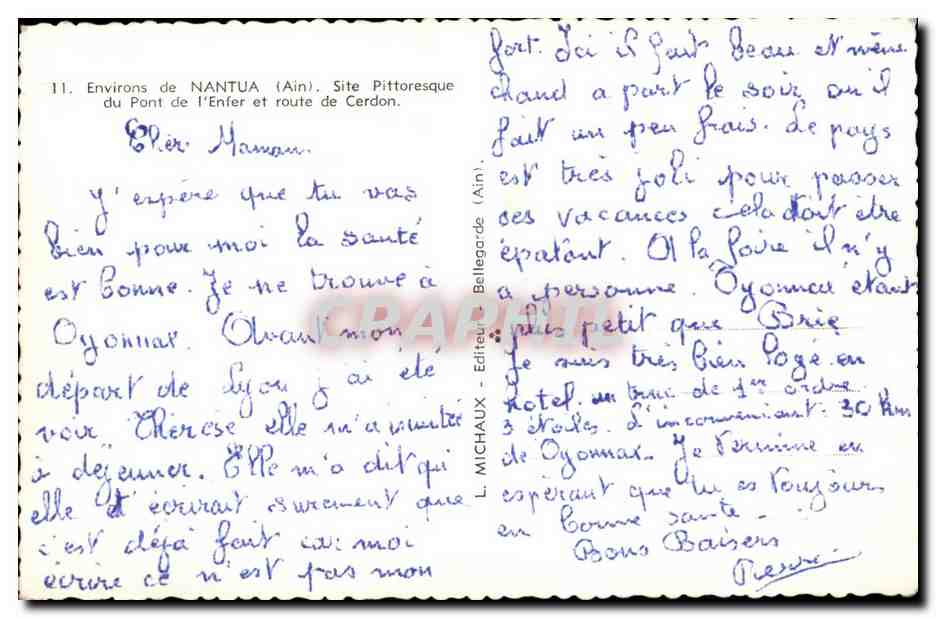 11. Environs de NANTUA (Ain). Site Pittoresque
du Pont de l'Enfer et route de Cerdon.
Cher Maman.
J'espère que tu vas
bien pour moi la santé
est bonne. Je me trouve à
Oyonnax. Avant mon
départ de Lyon j'ai été
voir Thérèse elle m'a invité
à déjeuner. Elle m'a dit qui
elle t'écrirait surement que
c'est déjà fait car moi
écrire ce n'est pas mon
L. MICHAUX - Editeur - Bellegarde (Ain).
fort. Ici il fait beau et même
chaud a part le soir ou il
fait un peu frais. Le pays
est très joli pour passer
ses vacances cela doit être
épatant. A la foire il n'y
a personne. Oyonnax étant
plus petit que Brie
Je suis très bien logé en
hotel. un truc de 1er ordre
3 étoiles. L'inconvenient: 30 km
de Oyonnax. Je termine en
espérant que tu es toujours
en bonne santé.
Bons Baisers
CPAPHIL